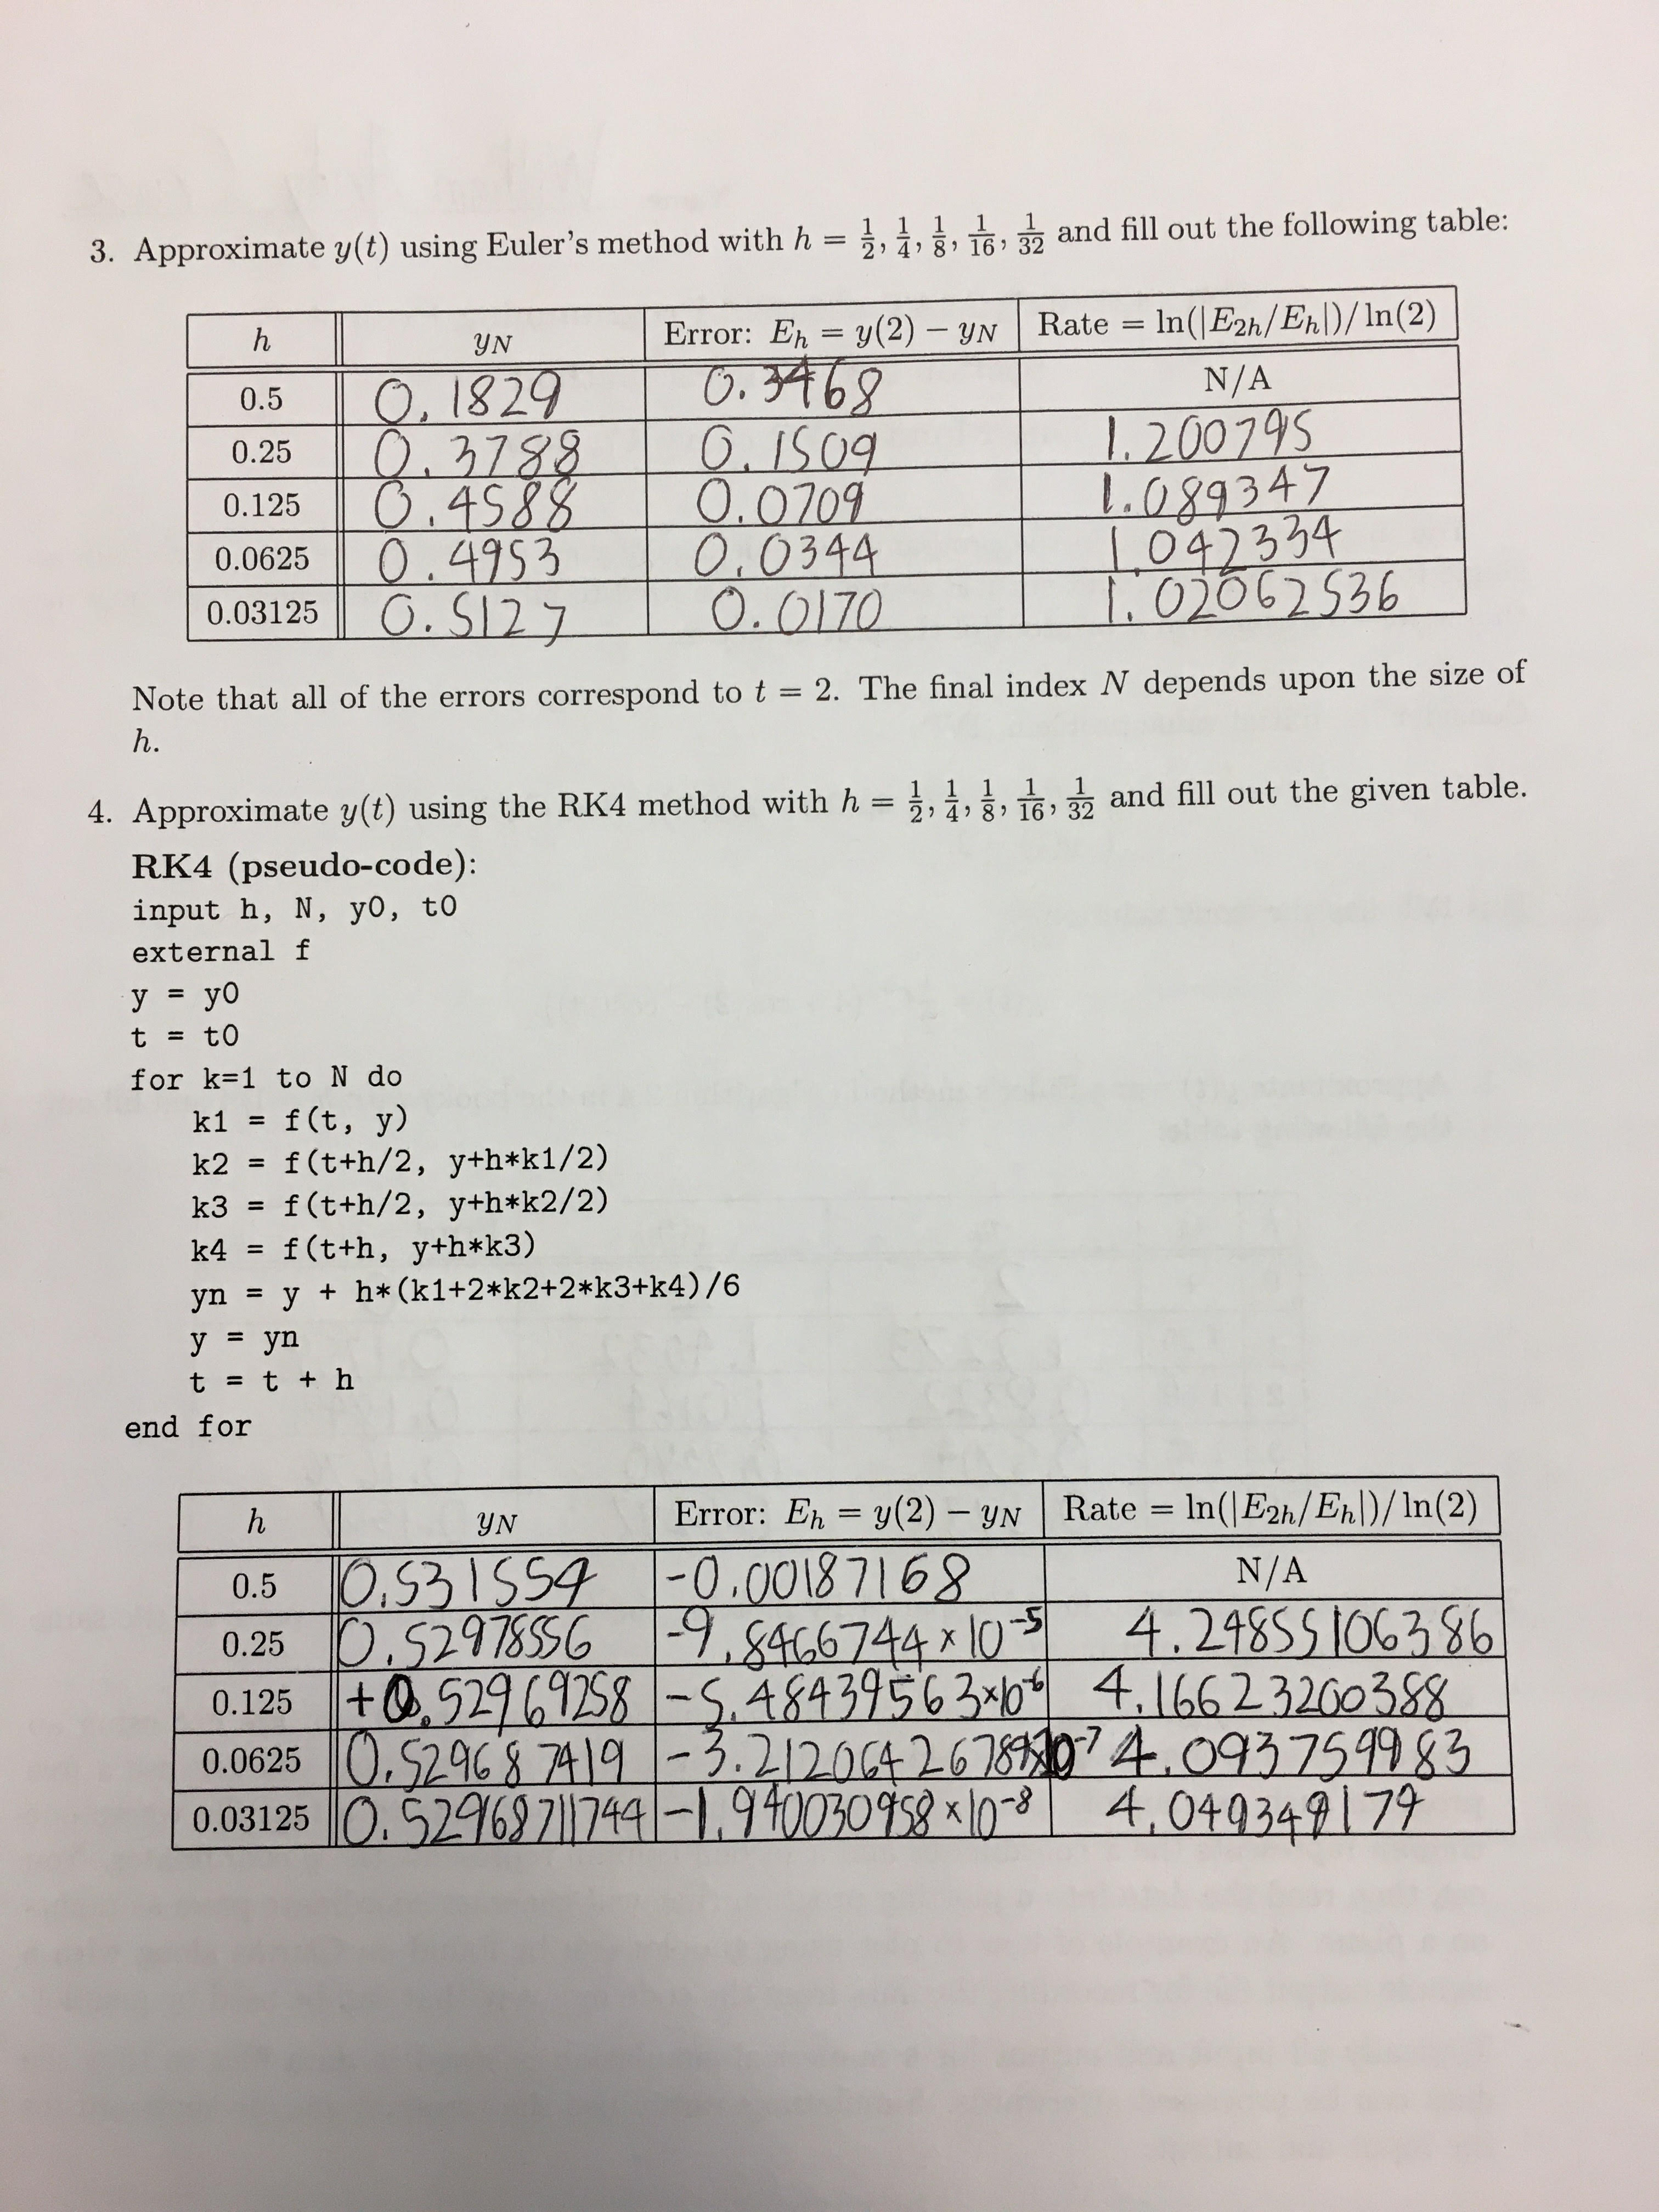 3. Approximate y(t) using Euler's method with h = 1/2, 1/4, 1/8, 1/16, 1/32 and fill out the following table:
h | yN | Error: Eh = y(2) − yN | Rate = ln(|E2h/Eh|)/ln(2)
0.5 | 0.1829 | 0.3468 | N/A
0.25 | 0.3788 | 0.1509 | 1.200795
0.125 | 0.4588 | 0.0709 | 1.089347
0.0625 | 0.4953 | 0.0344 | 1.042334
0.03125 | 0.5127 | 0.0170 | 1.02062536
Note that all of the errors correspond to t = 2. The final index N depends upon the size of
h.
4. Approximate y(t) using the RK4 method with h = 1/2, 1/4, 1/8, 1/16, 1/32 and fill out the given table.
RK4 (pseudo-code):
input h, N, y0, t0
external f
y = y0
t = t0
for k=1 to N do
k1 = f(t, y)
k2 = f(t+h/2, y+h*k1/2)
k3 = f(t+h/2, y+h*k2/2)
k4 = f(t+h, y+h*k3)
yn = y + h*(k1+2*k2+2*k3+k4)/6
y = yn
t = t + h
end for
h | yN | Error: Eh = y(2) − yN | Rate = ln(|E2h/Eh|)/ln(2)
0.5 | 0.531554 | -0.00187168 | N/A
0.25 | 0.52978556 | -9.8466744 × 10^-5 | 4.24855106386
0.125 | +0.52969258 | -5.48439563×10^-6 | 4.16623200388
0.0625 | 0.529687419 | ×10^-7 | 4.0937599983
0.03125 | 0.52968711744 | -1.940030958 × 10^-8 | 4.049349179